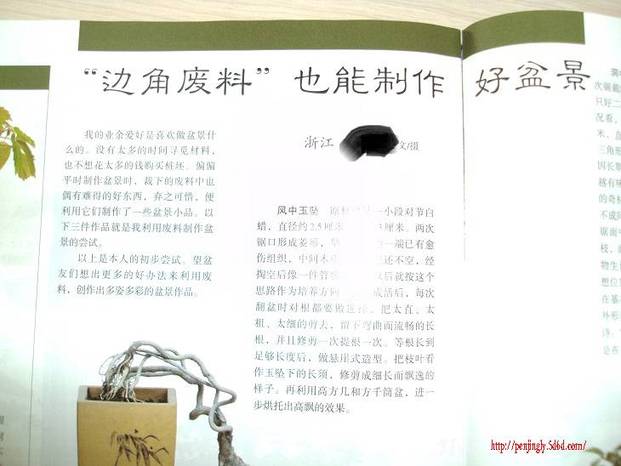 “边角废料”也能制作好盆景
浙江
文/摄
我的业余爱好是喜欢做盆景什
么的。没有太多的时间寻觅材料，
也不想花太多的钱购买桩坯。偏偏
平时制作盆景时，裁下的废料中也
偶有难得的好东西，弃之可惜，便
利用它们制作了一些盆景小品。以
下三件作品就是我利用废料制作盆
景的尝试。
以上是本人的初步尝试。望盆
友们想出更多的好办法来利用废
料，创作出多姿多彩的盆景作品。
风中玉坠 一小段对节白
蜡，直径约2.5厘米 厘米。两次
锯口形成菱形， 一端已有愈
伤组织，中间木 还不空，经
掏空后像一件管 以后就按这个
思路作为培养方向 成活后，每次
翻盆时对根都要做 把太直、太
粗、太细的剪去，留下弯曲而流畅的长
根，并且修剪一次提根一次。等根长到
足够长度后，做悬崖式造型。把枝叶看
作玉坠下的长须，修剪成细长而飘逸的
样子。再利用高方几和方千筒盆，进一
步烘托出高飘的效果。
次锯截
只好二
况看，
米，盘
三角形
因长期
越有味
的奇材
不成阵
锯面中
枝，顿
物生
想位
在暴
外相
诗。
是在
http://penjingly.5d6d.com/